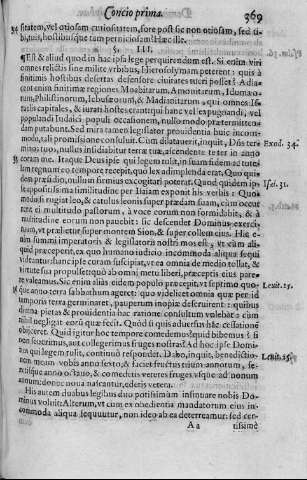 Concio prima. 369
sitatem, vel otiosam curiositatem, fore posse non otiosam, sed
bis, hostibusque tam perniciosam hanc ille.
§. III.
Est & aliud quod in hac ipsa lege perquirendum est. Si enim viri
omnes relictis sine milite vrbibus, Hierosolymam peterent: quis à
finitimis hostibus desertas defensore ciuitates tueri posset? Adia-
cent enim finitimæ regiones Moabitarum, Amonitarum, Idumæo-
rum, Philistinorum, Iebusæorum, & Madianitarum, qui omnes I-
sraelis capitales, & iurati hostes erant: qui hanc vel expugnandi, vel
populandi Iudaici populi occasionem, nullo modo prætermitten-
dam putabant. Sed mira tamen legislator prouidentia huic incom-
modo, tali promissione consuluit. Cum dilatauero, inquit, Dñs ter- Exod. 34.
minos tuos, nullus insidiabitur terræ tuæ, ascendente te ter in anno
coram me. Itaque Deus ipse qui legem tulit, in suam fidem ac tute-
lam regnum eo tempore recepit, quo lex adimplenda erat. Quo qui-
dem præsidio, nullum firmius excogitari poterat. Quod quidem ip- Isai. 31.
se apposita similitudine per Isaiam exponit his verbis: Quo-
modo si rugiat leo, & catulus leonis super prædam suam, cum occur-
rerit ei multitudo pastorum, à voce eorum non formidabit, & à
multitudine eorum non pauebit: sic descendet Dominus exerci-
tuum, vt prælietur super montem Sion, & super collem eius. Hæ e-
nim summi imperatoris & legislatoris nostri mos est, vt cum ali-
quid præceperit, ex quo humano iudicio incommoda aliqua sequi
videantur: hanc ipse curam suscipiat, vt ea omnia de medio tollat, &
virtute sua propulset: quò ab omni metu liberi, præceptis eius pare-
re valeamus. Sic enim alias eidem populo præcepit, vt septimo quo- Leuit. 25.
que anno terra sabathum ageret: quo videlicet omnia quæ per id
temporis terra germinaret, pauperum inopiæ deseruirent: quibus
diuina pietas & prouidentia hac ratione consultum volebat: cum
nihil negligat eorū quæ fecit. Quod si quis aduersus hæc cessatione
obijceret. Quid igitur hoc tempore comedemus, quid bibemus: si
non seuerimus, aut collegerimus fruges nostras? Ad hoc ipse Domi-
nus qui legem tulit, continuò respondet. Dabo, inquit, benedictio- Leuit. 25.
nem meam vobis anno sexto, & faciet fructus trium annorum, se-
retisque anno octauo, & comedetis veteres fruges vsque ad nonum
annum: donec noua nascantur, edetis vetera.
His autem duabus legibus duo potissimum insinuare nobis Do-
minus voluit: Alterum, vt cum ex obedientia mandatorum eius in-
commoda aliqua sequuntur, non ideo ab ea deterreamur: sed cer-
A a tissimè